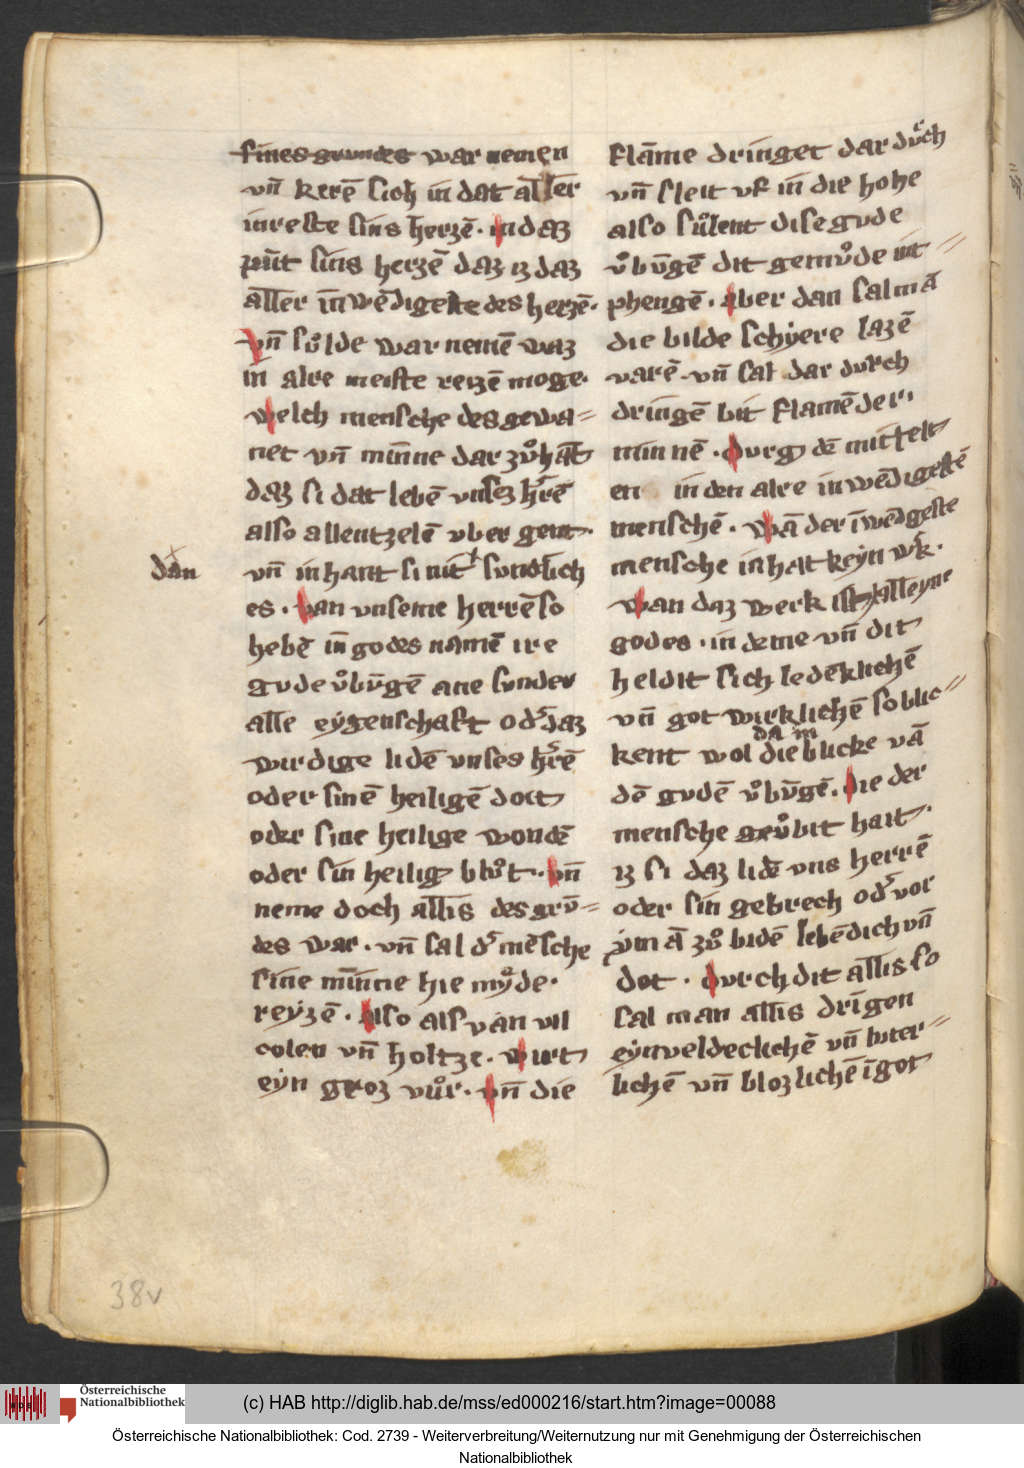 sines grundes war nemen
vn̄ kerē sich in dat aller
inreste sins herzē. in daz
pūt sins herzē daz iz daz
aller in wēdigeste des herzē.
vn̄ sůlde war nemē waz
in alre meiste reizē moge.
welch mensche des gewa=
net vn̄ min̄ne dar zů hāt
daz si dat lebē vnsez hrē̄
also allentzelē vber gent.
vn̄ in hant si nit sundlich
dan
es. van vnseme herrē so
hebē in̄ godes namē ire
gude ůbūgē ane sunder
alle eẏgenschaft odˀ daz
wirdige lidē vnses hˀrē
oder sinē heiligē doit
oder sine heilige wondē
oder sin heilig blůt. vn̄
neme doch allis des grū=
des war. vn̄ sal dˀ mēsche
sine min̄ne hie mẏ̊de.
reẏzē. also als van vil
colen vn̄ holtze. wirt
eẏn groz vůr. vn̄ die
flāme dringet dar durch
vn̄ sleit vf in die hohe
also sůlent dise gude
ůbūgē dit gemůde int=
phengē. aber dan sal mā
die bilde schẏere lazē
varē. vn̄ sal dar durch
dringē bit flamē der
minnē. durg dē mittelt
en in den alre in wēdigestē
menschē. wā der īwēdgeste
mensche in hat keẏn wˀk.
wan daz werk ist alleyne
godes. in deme vn̄ dit
heldit sich ledēklichē
vn̄ got wirklichē so blic=
da in
kent wol die blicke vā
dē gudē ůbūgē. die der
mensche geůbit hait.
iz si daz lidē vns herrē
oder sin gebrech odˀ vor
ẏm ā zů bidē lebēdich vn̄
dot. durch dit allis so
sal man allis drīgen
eẏnveldeclichē vn̄ luter=
lichē vn̄ blozlichē ī got
38v
(c) HAB http://diglib.hab.de/mss/ed000216/start.htm?image=00088
Österreichische Nationalbibliothek
Österreichische Nationalbibliothek: Cod. 2739 - Weiterverbreitung/Weiternutzung nur mit Genehmigung der Österreichischen
Nationalbibliothek